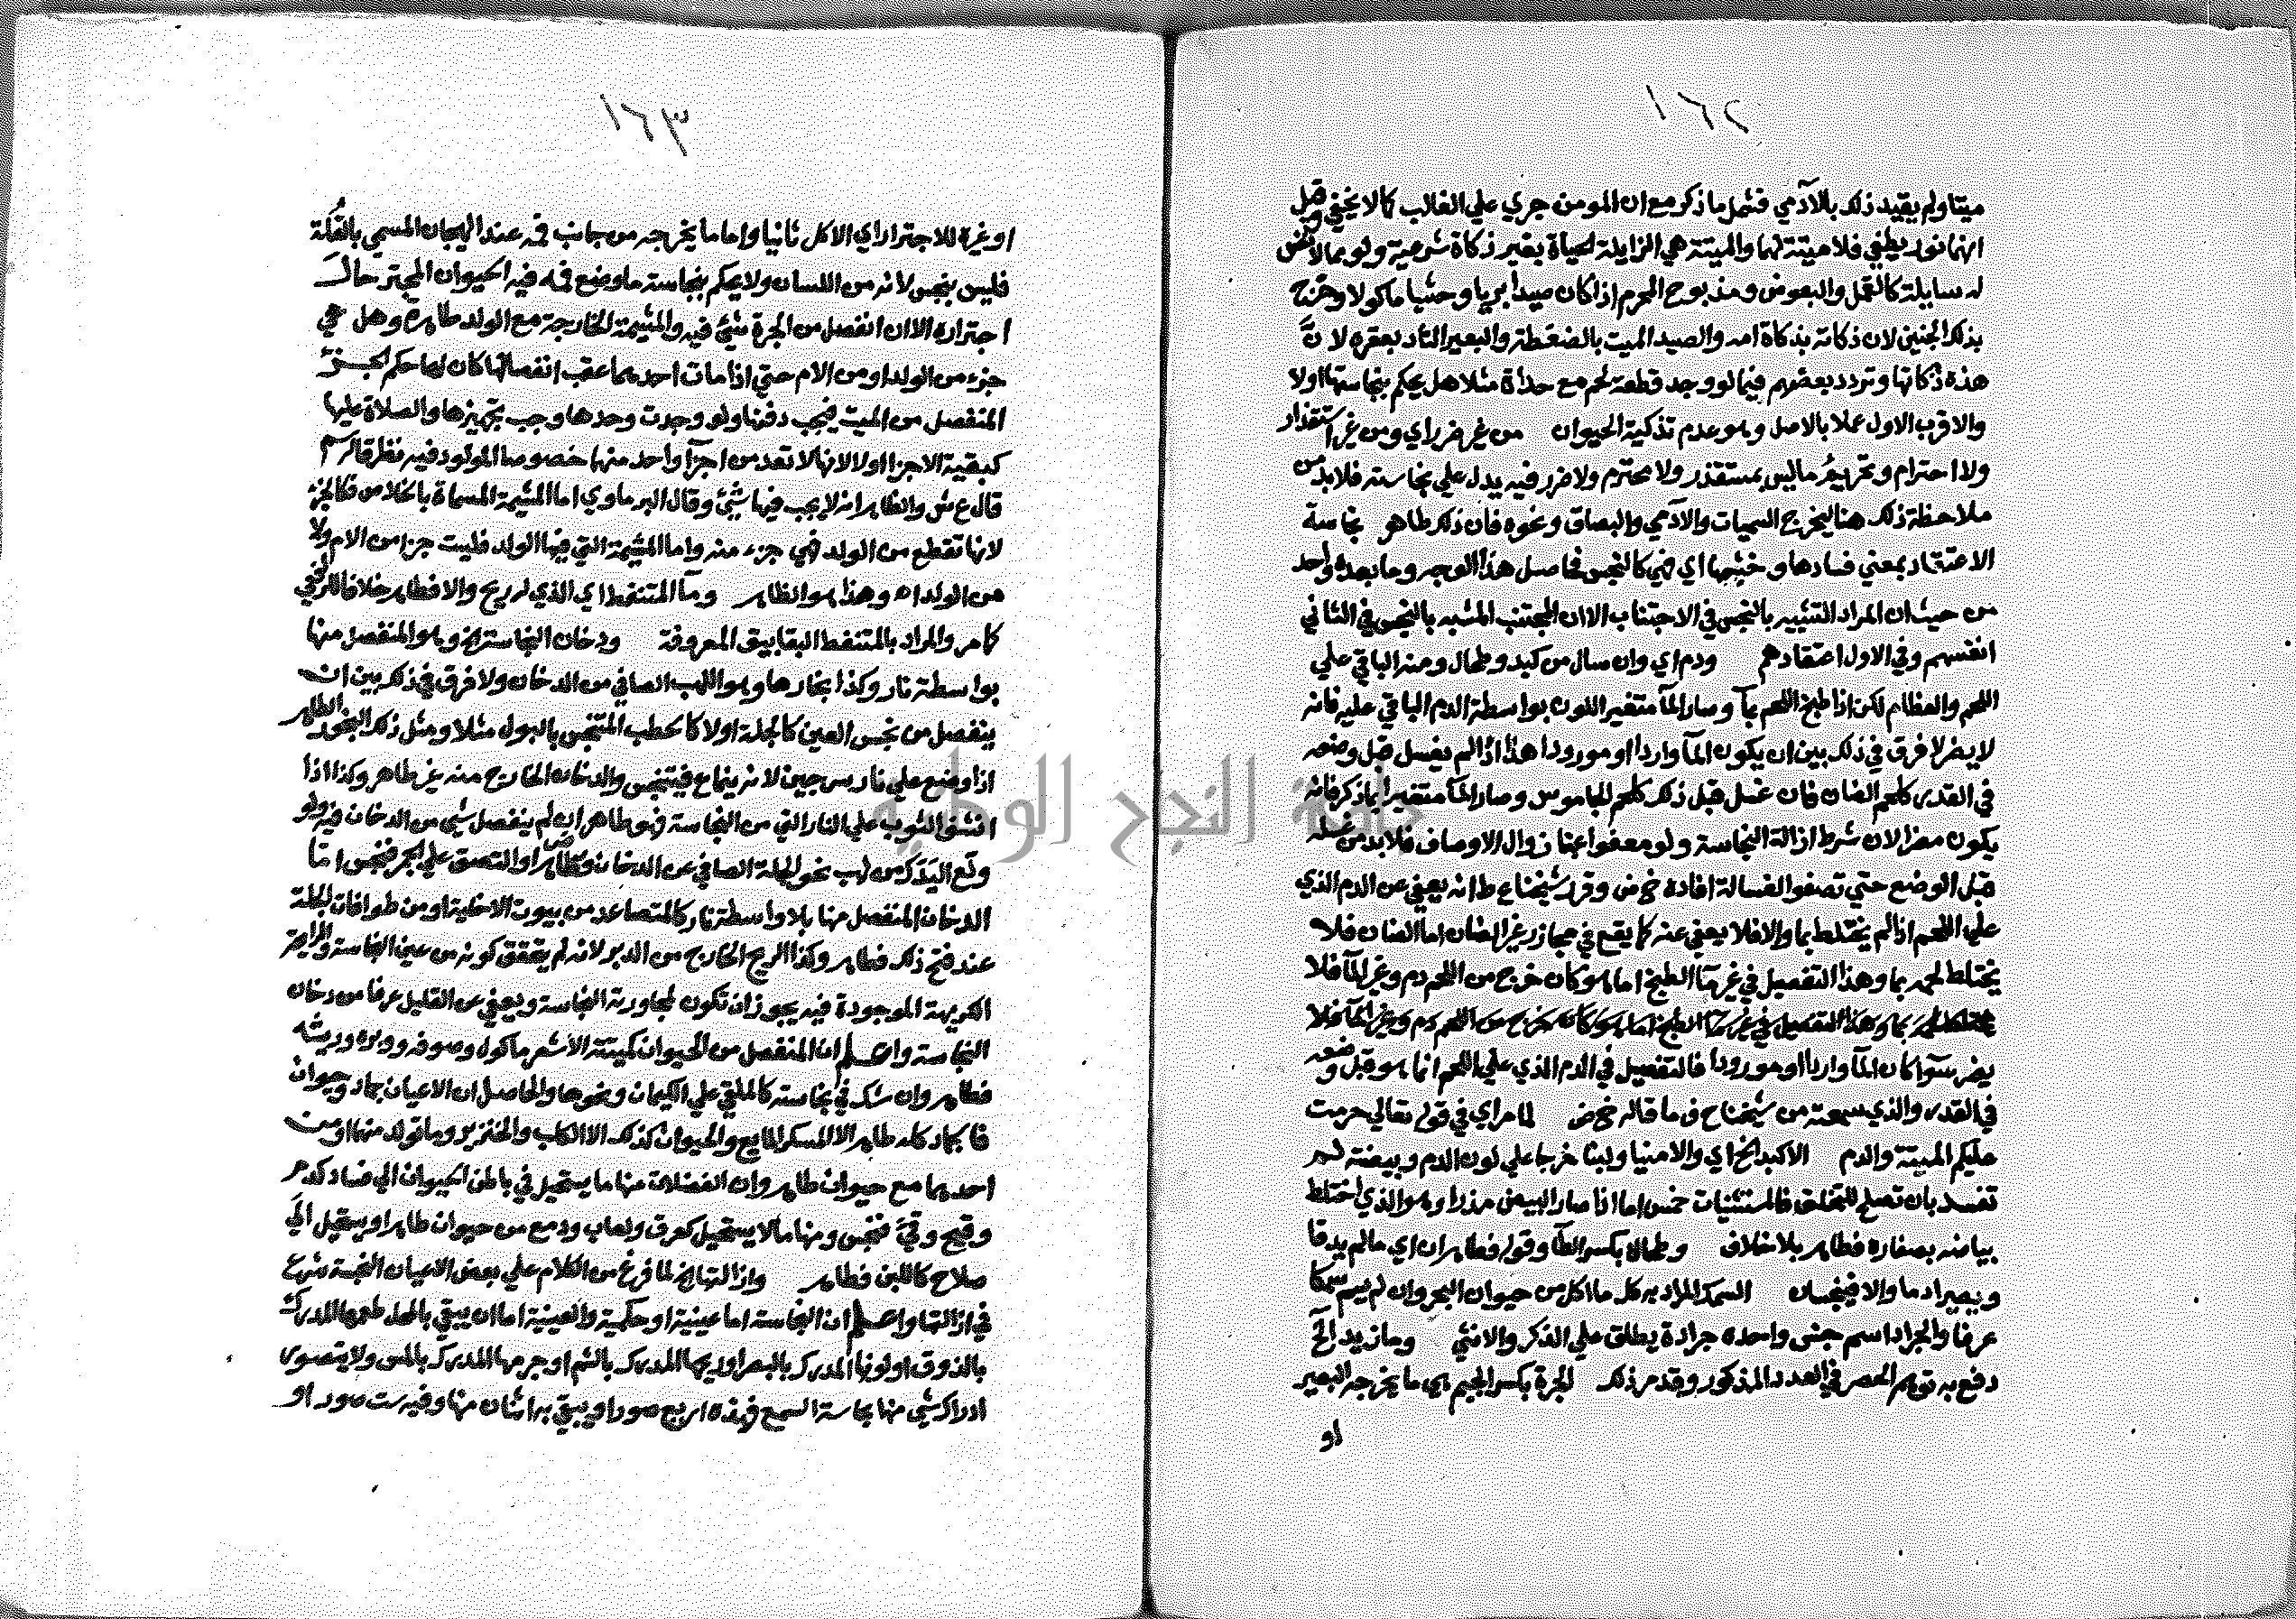 ١٦٢
ميتا ولم يقيد ذلك بالآدمي فشمل ما ذكر مع ان المومن جري علي الغالب كما لا يخفي وقيل
انها نود يطفي فلا ميتة لها والميتة هي الزايلة الحياة بغير ذكاة شرعية ولو بما لا نفس
له سايلة كالقمل والبعوض ومذبوح المحرم اذا كان صيدا بريا وحشيا ماكولا وخرج
بذلك الجنين لان ذكاته بذكاة امه والصيد الميت بالضغطة والبعير الناد بعقره لان
هذه ذكاتها وتردد بعضهم فيما لو وجد قطعة لحم مع حدأة مثلا هل يحكم بنجاستها اولا
والاقرب الاول عملا بالاصل وهو عدم تذكية الحيوان من غير ضرر اي ومن غير استقذار
ولا احترام وتحريم ما ليس بمستقذر ولا محترم ولا ضرر فيه يدل علي نجاسته فلا بد من
ملاحظة ذلك هنا ليخرج السميات والآدمي والبصاق ونحوه فان ذلك طاهر نجاسة
الاعتقاد بمعني فسادها وخبثها اي فهي كالنجس فحاصل هذا الوجه وما بعده واحد
من حيث ان المراد التشبيه بالنجس في الاجتناب الا ان المجتنب المشبه بالنجس في الثاني
انفسهم وفي الاول اعتقادهم ودم اي وان سال من كبد وطحال ومنه الباقي علي
اللحم والعظام لكن اذا طبخ اللحم بمآ وصار المآ متغير اللون بواسطة الدم الباقي عليه فانه
لا يضر لا فرق في ذلك بين ان يكون المآ واردا او مورودا هذا اذا لم يغسل قبل وضعه
في القدر كلحم الضان فان غسل قبل ذلك كلحم الجاموس وصار المآ متغيرا بما ذكر فانه
يكون مضرا لان شرط ازالة النجاسة ولو معفوا عنها زوال الاوصاف فلا بد من غسله
قبل الوضع حتي تصفوا الغسالة افاده خ ض وقرر شيخنا ع ط انه يعفي عن الدم الذي
علي اللحم اذا لم يختلط بما والا فلا يعفي عنه كما يقع في مجازر غير الضان اما الضان فلا
يختلط لحمه بما وهذا التفصيل في غير مآ الطبخ اما هو كان خرج من اللحم دم وغير المآ فلا
يختلط لحمه بما وهذا التفصيل في غير مآ الطبخ اما هو كان خرج من اللحم دم وغير المآ فلا
يضر سوآ كان المآ واردا او مورودا فالتفصيل في الدم الذي علي اللحم انما هو قبل وضعه
في القدر والذي سمعته من شيخنا ح ف ما قاله خ ض لما مر اي في قوله تعالي حرمت
عليكم الميتة والدم الا كبد الخ اي والا منيا ولبنا خرجا علي لون الدم وبيضة لم
تفسد بان تصلح للتخلق فالمستثنيات خمس اما اذا صار البيض مذرا وهو الذي اختلط
بياضه بصفاره فطاهر بلا خلاف وطحال بكسر الطآ وقوله فطاهران اي ما لم يدقا
ويصيرا دما والا فينجسان السمك المراد به كل ما اكل من حيوان البحر وان لم يسم سمكا
عرفا والجراد اسم جنس واحده جرادة يطلق علي الذكر والانثي وما نزيد الخ
دفع به توهم الحصر في العدد المذكور وقد مر ذلك الجرة بكسر الجيم هي ما يخرجه البعير
او
١٦٣
او غيره للاجترار اي الاكل ثانيا واما ما يخرجه من جانب فمه عند الهيجان المسمي بالقلة
فليس بنجس لانه من اللسان ولا يحكم بنجاسة ما وضع فمه فيه الحيوان المجتر حال
اجتراره الا ان انفصل من الجرة شئ فيه والمشيمة الخارجة مع الولد طاهرة وهل هي
جزء من الولد او من الام حتي اذا مات احدهما عقب انفصالها كان لها حكم الجزء
المنفصل من الميت فيجب دفنها ولو وجدت وحدها وجب تجهيزها والصلاة عليها
كبقية الاجزا اولا لانها لا تعد من اجزآ واحد منها خصوصا المولود فيه نظر قاله سم
قال ع ش والظاهر انه لا يجب فيها شئ وقال البرماوي اما المشيمة المسماة بالخلاص فكالجزء
لانها تقطع من الولد فهي جزء منه واما المشيمة التي فيها الولد فليست جزا من الام ولا
من الولد اه وهذا هو الظاهر ومآ المتنفط اي الذي له ريح والا فطاهر خلافا للرافعي
كما مر والمراد بالمتنفط البقابيق المعروفة ودخان النجاسة الخ وهو المنفصل منها
بواسطة نار وكذا بخارها وهو اللهب الصافي من الدخان ولا فرق في ذلك بين ان
ينفصل من نجس العين كالجلة اولا كالحطب المتنجس بالبول مثلا ومثل ذلك البخور الطاهر
اذا وضع علي نار سرجين لانه ينماع فيتنجس والدخان الخارج منه غير طاهر وكذا اذا
انشق الثوب علي النار التي من النجاسة فهو طاهر ان لم ينفصل شئ من الدخان فيه ولو
وقع اليد من لهب نحو الجلة الصافي عن الدخان وهو طاهر او التصق علي الجمر فنجس امّا
الدخان المنفصل منها بلا واسطة نار كالمتصاعد من بيوت الاخلية او من طوافات الجلة
عند فتح ذلك فطاهر وكذا الريح الخارج من الدبر لانه لم يتحقق كونه من عين النجاسة والرايحة
الكريهة الموجودة فيه يجوز ان تكون لمجاورته النجاسة ويعفي عن القليل عرفا من دخان
النجاسة واعلم ان المنفصل من الحيوان كميتته الا شعر ماكول وصوفه ووبره وريشه
فطاهر وان شك في نجاسته كالملقي علي الكيمان ونحوها والحاصل ان الاعيان جماد وحيوان
فالجماد كله طاهر الا المسكر المايع والحيوان كذلك الا الكلب والخنزير وما تولد منهما او من
احدهما مع حيوان طاهر وان الفضلات منها ما يستحيل في باطن الحيوان الي فساد كدم
وقيح وقئ فنجس ومنها ما لا يستحيل كعرق ولعاب ودمع من حيوان طاهر او يستحيل الي
صلاح كاللبن فطاهر وازالتها الخ لما فرغ من الكلام علي بعض الاعيان النجسة شرع
في ازالتها واعلم ان النجاسة اما عينية او حكمية والعينية اما ان يبقي بالمحل طعمها المدرك
بالذوق او لونها المدرك بالبصر او ريحها المدرك بالشم او جرمها المدرك بالمس ولا يتصور
ادراك شئ منها بحاسة السمع فهذه اربع صور او يبقي به اثنان منها وفيه ست صور او